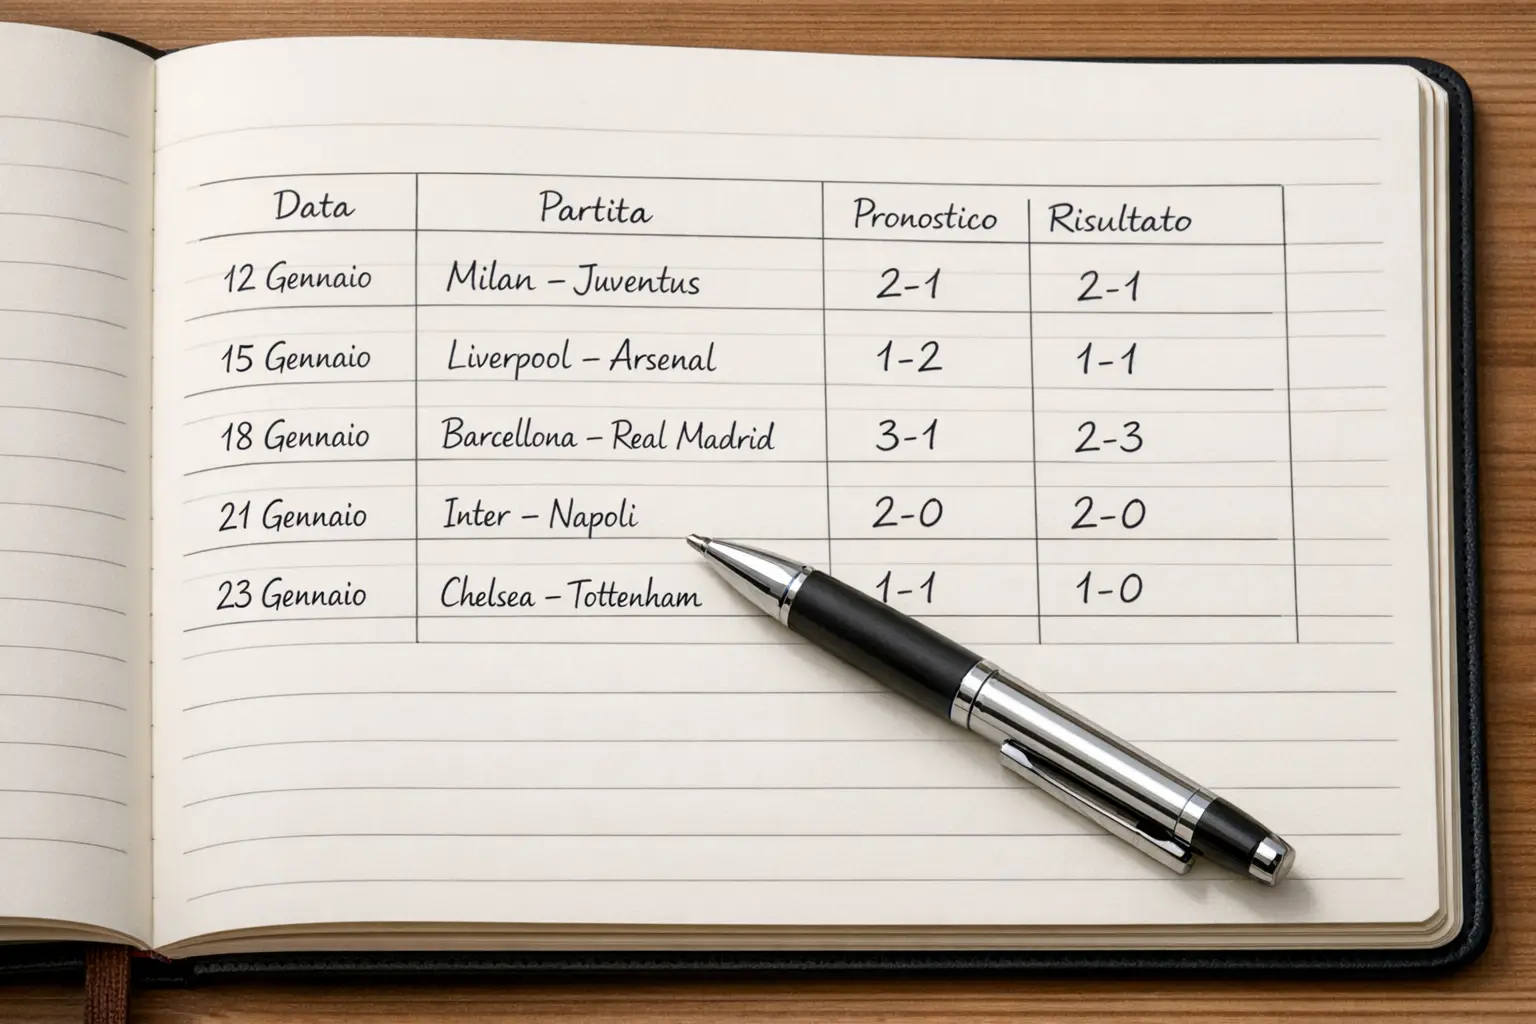 Data Partita Pronostico Risultato
12 Gennaio Milan – Juventus 2-1 2-1
15 Gennaio Liverpool – Arsenal 1-2 1-1
18 Gennaio Barcellona – Real Madrid 3-1 2-3
21 Gennaio Inter – Napoli 2-0 2-0
23 Gennaio Chelsea – Tottenham 1-1 1-0